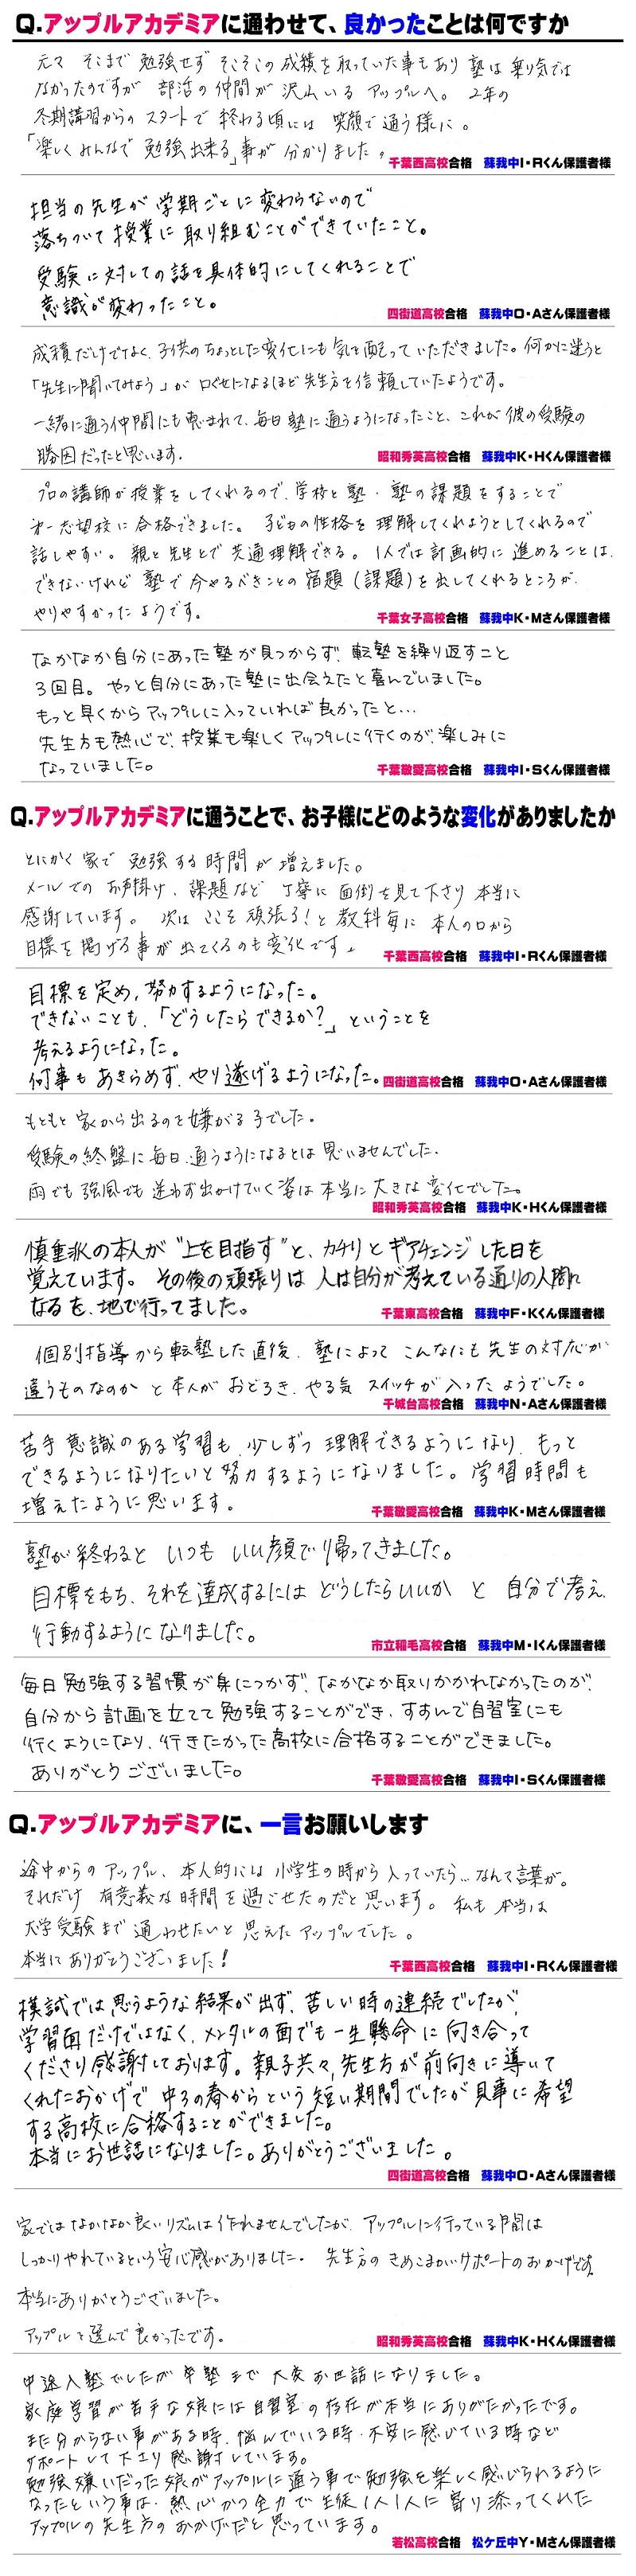 Q.アップルアカデミアに通わせて、良かったことは何ですか
元々 そこまで 勉強せず そこそこの 成績を 取っていた事もあり 塾は 乗り気では
なかったのですが 部活の 仲間が 沢山いる アップルへ。 2年の
冬期講習からの スタートで 終わる頃には 笑顔で 通う様に。
「楽しく みんなで 勉強出来る」事が 分かりました。
千葉西高校合格 蘇我中I・Rくん保護者様
担当の先生が 学期ごとに変わらないので
落ちついて 授業に 取り組むことができていたこと。
受験に対しての話を具体的にしてくれることで
意識が変わったこと。
四街道高校合格 蘇我中O・Aさん保護者様
成績だけでなく、子供のちょっとした変化にも気を配っていただきました。何かに迷うと
「先生に聞いてみよう」が口ぐせになるほど先生方を信頼していたようです。
一緒に通う仲間にも恵まれて、毎日塾に通うようになったこと、これが彼の受験の
勝因だったと思います。
昭和秀英高校合格 蘇我中K・Hくん保護者様
プロの講師が授業をしてくれるので、学校と塾・塾の課題をすることで
第一志望校に合格できました。 子どもの性格を理解してくれようとしてくれるので
話しやすい。 親と先生とで共通理解できる。 1人では計画的に進めることは、
できないけれど 塾で今やるべきことの宿題(課題)を出してくれるところが、
やりやすかったようです。
千葉女子高校合格 蘇我中K・Mさん保護者様
なかなか自分にあった塾が見つからず、転塾を繰り返すこと
3回目。やっと自分にあった塾に出会えたと喜んでいました。
もっと早くからアップルに入っていれば良かったと…
先生方も熱心で、授業も楽しくアップルに行くのが、楽しみに
なっていました。
千葉敬愛高校合格 蘇我中I・Sくん保護者様
Q.アップルアカデミアに通うことで、お子様にどのような変化がありましたか
とにかく 家で 勉強する 時間が 増えました。
メールでの お声掛け、課題など 丁寧に 面倒を見て下さり 本当に
感謝しています。 次は ここを 頑張る!と 教科毎に 本人の口から
目標を 掲げる事が 出てくるのも 変化です。
千葉西高校合格 蘇我中I・Rくん保護者様
目標を定め、努力するようになった。
できないことも、「どうしたらできるか?」ということを
考えるようになった。
何事も あきらめず、やり遂げるようになった。
四街道高校合格 蘇我中O・Aさん保護者様
もともと 家から出るのを嫌がる子でした。
受験の終盤に毎日通うようになるとは思いませんでした。
雨でも 強風でも 迷わず出かけていく姿は 本当に大きな変化でした。
昭和秀英高校合格 蘇我中K・Hくん保護者様
慎重派の本人が“上を目指す”と、カチリとギアチェンジした日を
覚えています。 その後の頑張りは 人は自分が考えている通りの人間に
なるを、地で行ってました。
千葉東高校合格 蘇我中F・Kくん保護者様
個別指導から転塾した直後、塾によって こんなにも 先生の対応が
違うものなのか と 本人が おどろき、やる気 スイッチが 入ったようでした。
千城台高校合格 蘇我中N・Aさん保護者様
苦手意識のある学習も、少しずつ 理解できるようになり、もっと
できるようになりたいと努力するようになりました。学習時間も
増えたように思います。
千葉敬愛高校合格 蘇我中K・Mさん保護者様
塾が終わると いつも いい顔で帰ってきました。
目標をもち、それを達成するには どうしたらいいか と 自分で考え
行動するように なりました。
市立稲毛高校合格 蘇我中M・Iくん保護者様
毎日勉強する習慣が身につかず、なかなか取りかかれなかったのが、
自分から計画を立てて勉強することができ、すすんで自習室にも
行くようになり、行きたかった高校に合格することができました。
ありがとうございました。
千葉敬愛高校合格 蘇我中I・Sくん保護者様
Q.アップルアカデミアに、一言お願いします
途中からのアップル、本人的には 小学生の時から 入っていたら…なんて言葉が。
それだけ 有意義な時間を過ごせたのだと思います。 私も 本当は
大学受験まで 通わせたいと 思えた アップルでした。
本当に ありがとうございました!
千葉西高校合格 蘇我中I・Rくん保護者様
模試では思うような結果が出ず、苦しい時の連続でしたが、
学習面だけではなく、メンタルの面でも一生懸命に向き合って
くださり感謝しております。親子共々、先生方が前向きに導いて
くれたおかげで 中3の春からという短い期間でしたが見事に希望
する高校に合格することができました。
本当にお世話になりました。ありがとうございました。
四街道高校合格 蘇我中O・Aさん保護者様
家ではなかなか良いリズムは作れませんでしたが、アップルに行っている間は
しっかりやれているという安心感がありました。 先生方のきめこまかいサポートのおかげです。
本当にありがとうございました。
アップルを選んで良かったです。
昭和秀英高校合格 蘇我中K・Hくん保護者様
中途入塾でしたが卒塾まで大変お世話になりました。
家庭学習が苦手な娘には自習室の存在が本当にありがたかったです。
また分からない事がある時、悩んでいる時・不安に感じている時など
サポートして下さり感謝しています。
勉強嫌いだった娘がアップルに通う事で勉強を楽しく感じられるように
なったという事は、熱心かつ全力で生徒1人1人に寄り添ってくれた
アップルの先生方のおかげだと思っています。
若松高校合格 松ケ丘中Y・Mさん保護者様